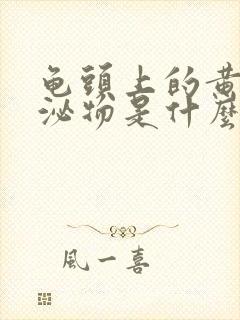 龟頭上的黄
泌物是什麽
風一喜